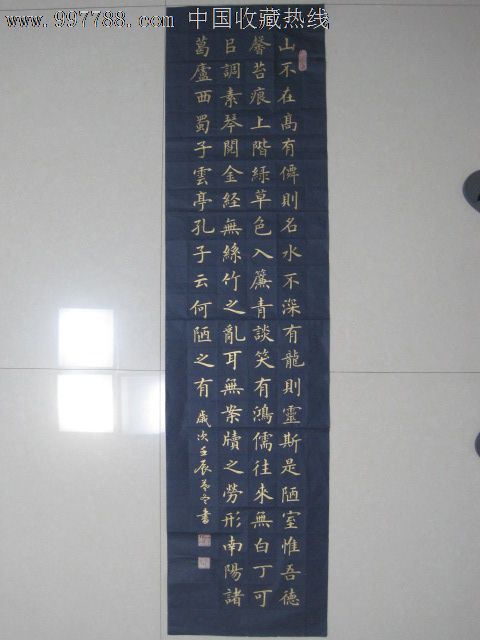 www.997788.com 中国收藏热线
山不在髙有僊則名水不深有龍則靈斯是陋室惟吾德
馨苔痕上階緑草色入簾青談笑有鴻儒往來無白丁可
㠯調素琴閱金経無絲竹之亂耳無案牘之勞形南陽諸
葛廬西蜀子雲亭孔子云何陋之有
歲次壬辰冬書